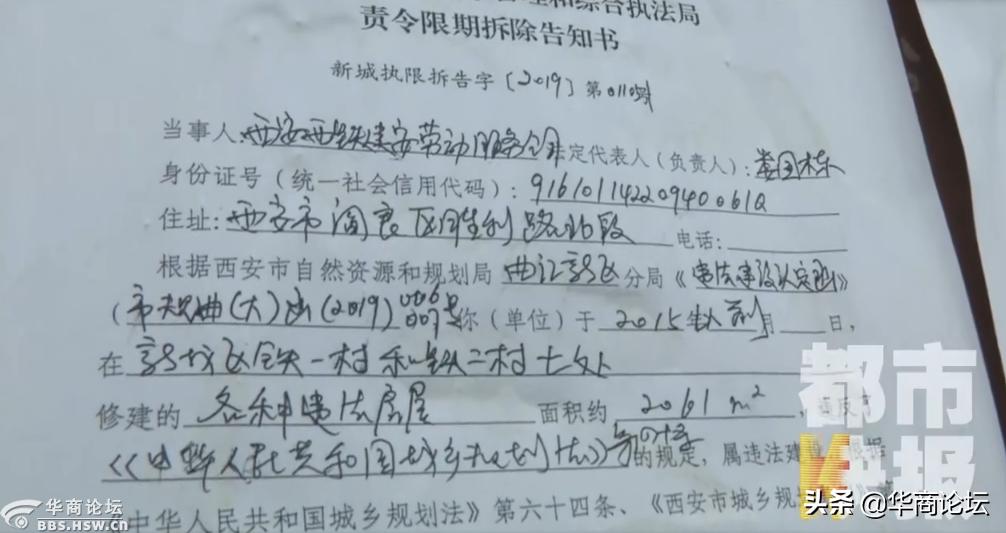 管理和综合执法局
责令限期拆除告知书
新城执限拆告字〔2019〕第0110号
当事人:西安西铁建安劳动服务公司法定代表人(负责人):娄国栋
身份证号(统一社会信用代码):91610114220940061Q
住址:西安市阎良区胜利路北段 电话:
根据西安市自然资源和规划局曲江新区分局《违法建设认定函》
(市规曲(大)函(2019)006 007号你(单位)于2015年以前月 日,
在新城区铁一村和铁二村七处
修建的各种违法房屋 面积约2061m²,违反了
《中华人民共和国城乡规划法》第四十条的规定,属违法建设。根据
《中华人民共和国城乡规划法》第六十四条、《西安市城乡规
都市快报
华商论坛
BBS.HSW.CN
头条@华商论坛